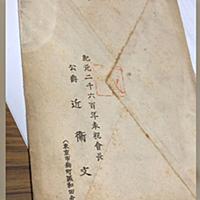 紀元二千六百年奉祝會長
公爵 近衞文
(東京市麴町區和田倉